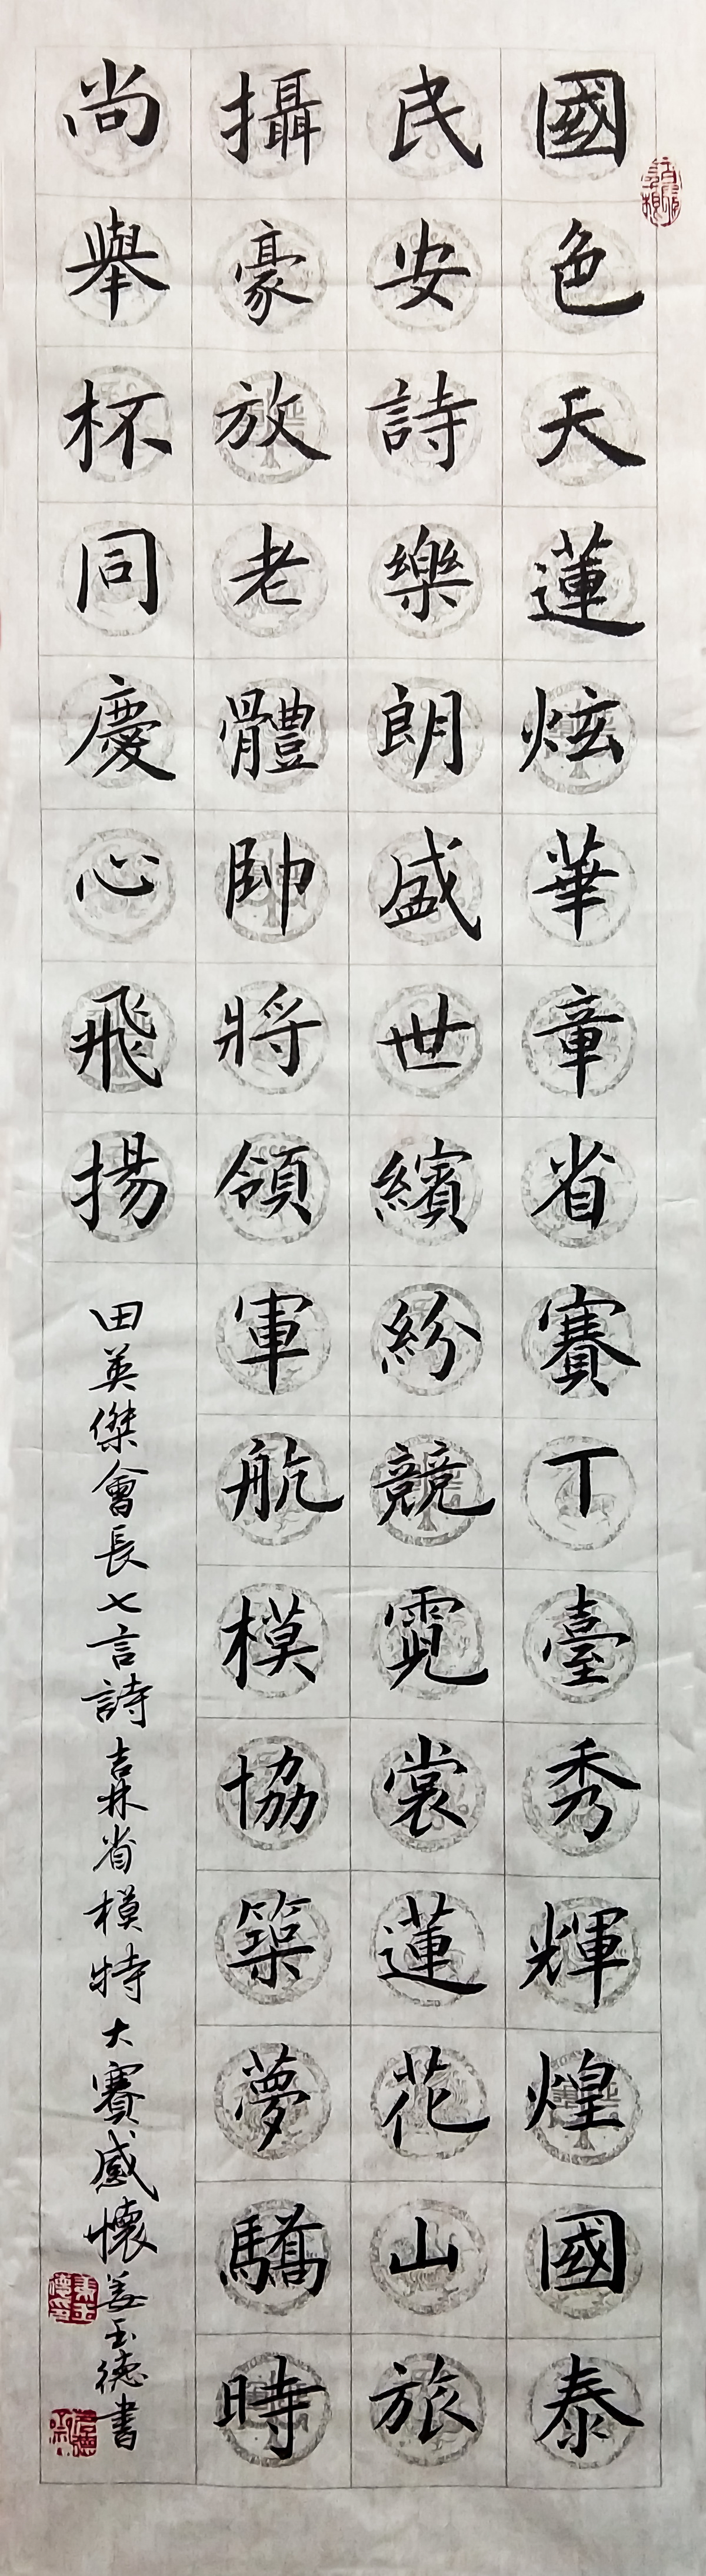 國色天蓮炫華章省賽丁臺秀輝煌國泰
民安詩樂朗盛世繽紛競霓裳蓮花山旅
攝豪放老體帥將領軍航模協築夢驕時
尚舉杯同慶心飛揚
田英傑會長七言詩吉林省模特大賽感懷姜玉德書